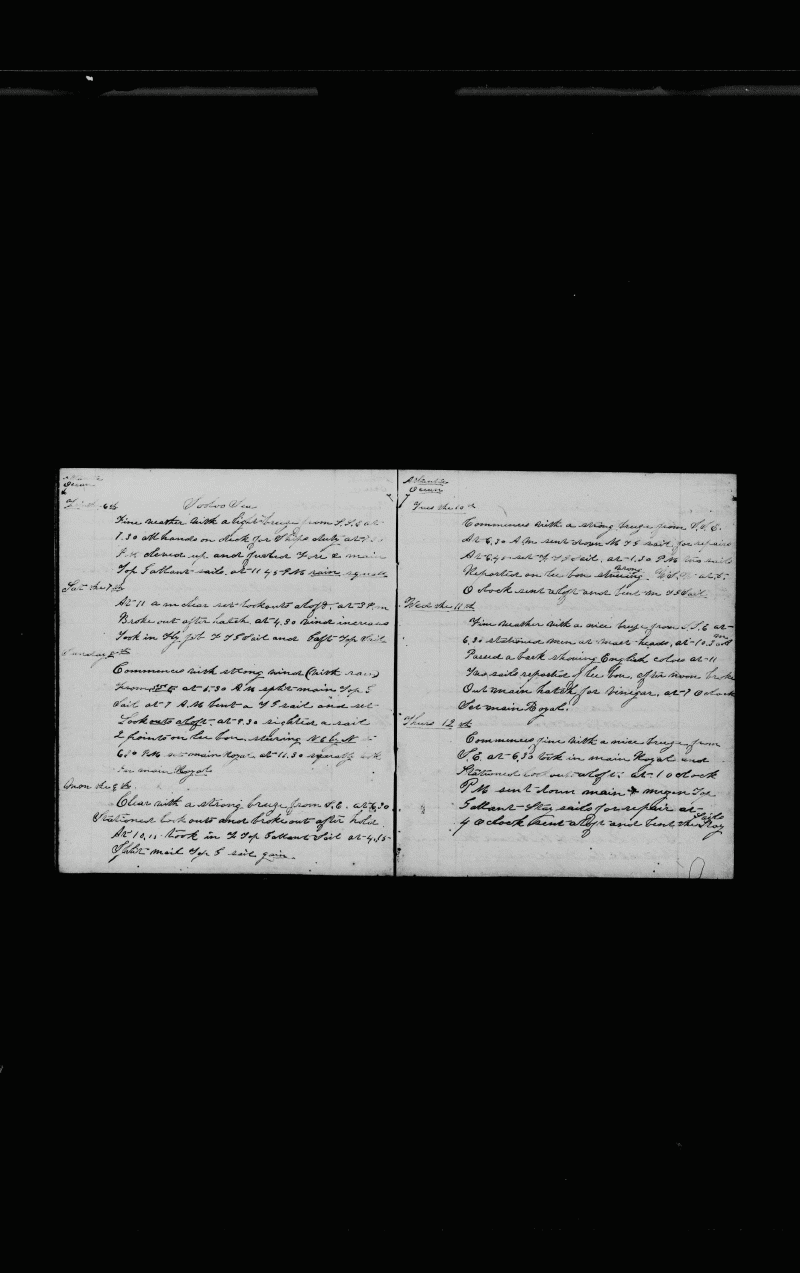 Atlantic
Ocean
6th
Fine weather with a light breeze from S.S.E at
1.30 all hands on deck for Ships duty at
P.M clewed up and furled Fore & main
Top Gallant sails. at 11.45 P.M rain squall
Sat the 7th
At 11 a m clear set lookouts aloft. at 3 P.m
Broke out after hatch at 4.30 wind increase
Took in Fly jib F T G Sail and Gaft Top Sail
Sunday 8th
Commences with strong wind (with rain)
From at 5.30 A M split main Top G
Sail at 7 A.M bent a T G sail and set
Lookouts aloft. at 9.30 sighted a sail
2 points on lee bow. steering N E by N
6.30 P.M set main Royal at 11.30 squally took
in main Royal
Mon the 9th
Clear with a strong breeze from S.E. at 6.30
Stationed lookouts and broke out after hold.
At 10,15 took in F Top Gallant Sail at 4.55
Split mail Top G sail gain.
Atlantic
Ocean
Tues the 10th
Commences with a strong breeze from S.S.E.
At 6.30 A.M sent down M T G sail for repairs
At 6.45 set F T G Sail. at 1.30 P.M two sails
Reported on lee bow steering at 5
O clock sent aloft and bent M T G Sail
Wed the 11th
Fine weather with a nice breeze from S.S.E at
6,30 stationed men at mast heads, at 10.30
Passed a bark showing English colors at 11
Two sails reported of lee bow. after noon broke
Out main hatch for vinegar. at 7 O clock
Set main Royal.
Thurs 12th
Commences fine with a nice breeze from
S.E. at 6,30 took in main Royal and
Stationed lookouts aloft. at 1 o clock
P.M sent down main & mizen Top
Gallant Stay sails for repair at
4 O clock sent aloft and bent the Stay
Sails